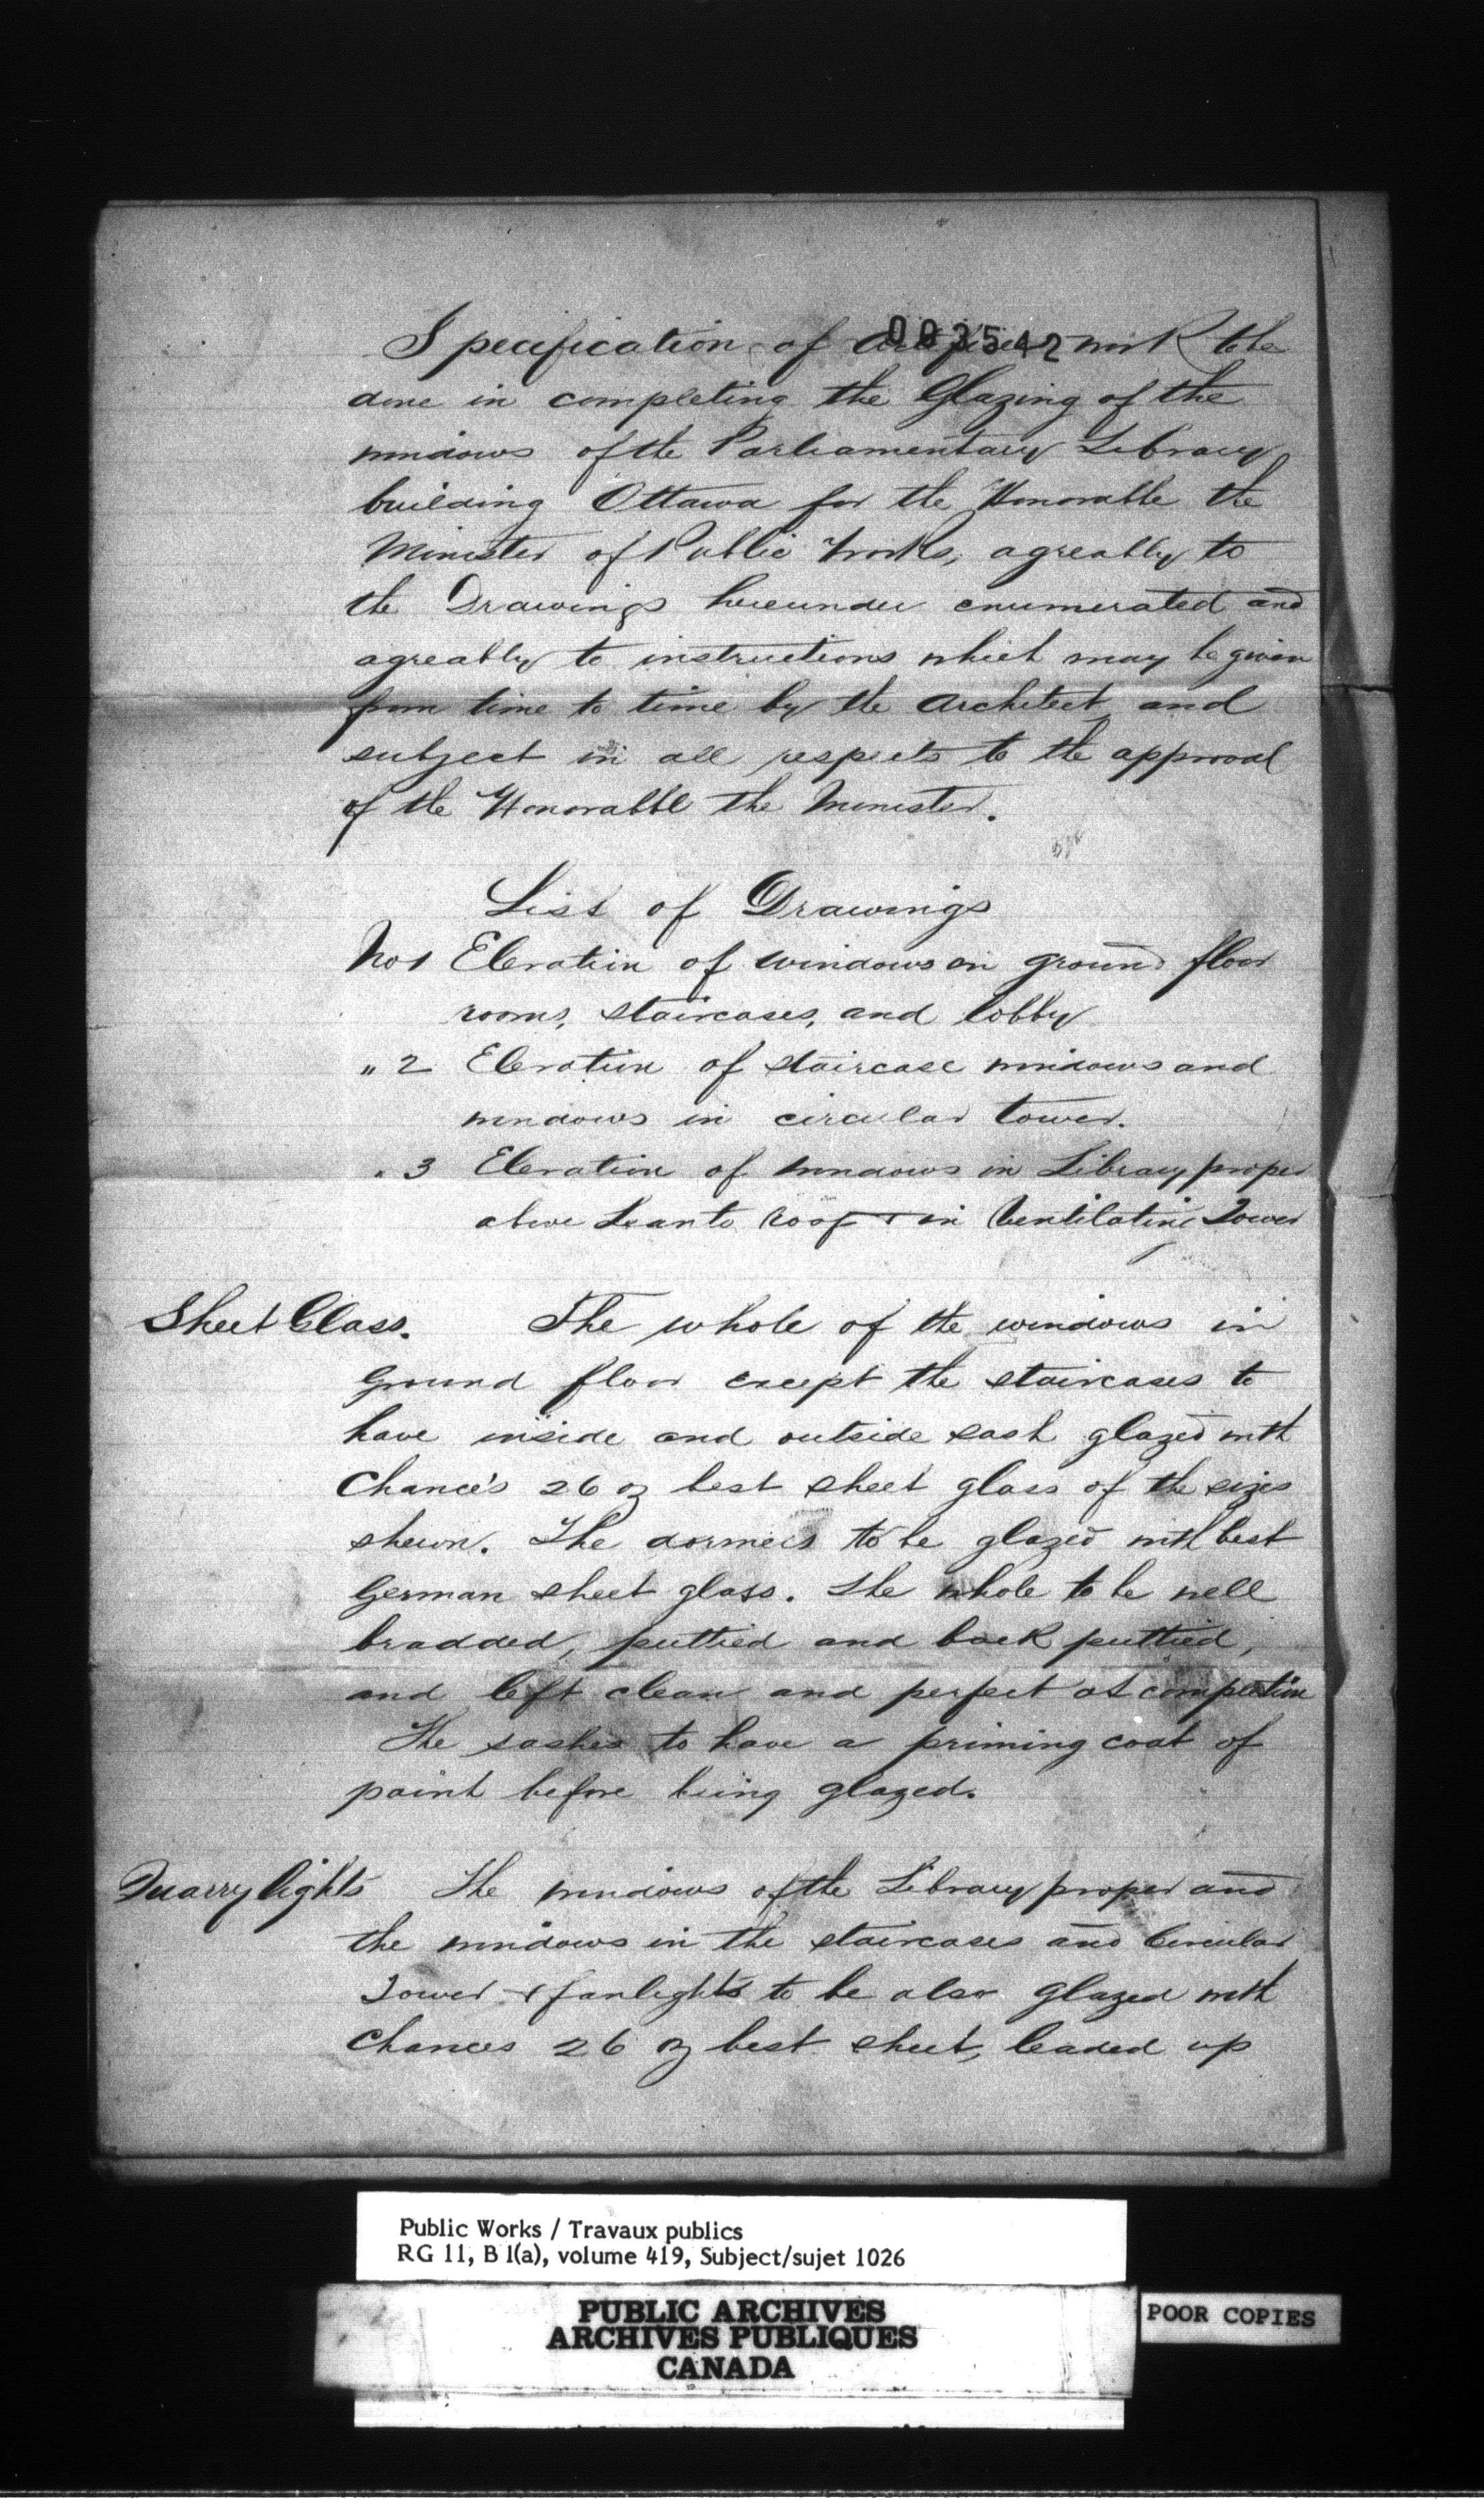 003542
Specification of Artificers work to be
done in completing the Glazing of the
windows of the Parliamentary Library
building Ottawa for the Honorable the
Minister of Public Works, agreably to
the Drawings hereunder enumerated and
agreably to instructions which may be given
from time to time by the Architect and
subject in all respects to the approval
of the Honorable the Minister.
List of Drawings
No 1 Elevation of windows on ground floor
rooms, staircases, and lobby
" 2 Elevation of staircase windows and
windows in circular tower.
" 3 Elevation of windows in Library proper
above Leanto roof & in Ventilating Tower
Sheet Glass. The whole of the windows in
Ground floor except the staircases to
have inside and outside sash glazed with
Chance's 26 oz best sheet glass of the sizes
shewn. The dormers to be glazed with best
German sheet glass. The whole to be well
bradded, puttied and back puttied,
and left clean and perfect at completion
The sashes to have a priming coat of
paint before being glazed.
Quarry lights The windows of the Library proper and
the windows in the staircases and Circular
Tower & fanlights to be also glazed with
Chances 26 oz best sheet, leaded up
Public Works / Travaux publics
RG 11, B 1(a), volume 419, Subject/sujet 1026
PUBLIC ARCHIVES
ARCHIVES PUBLIQUES
CANADA
POOR COPIES